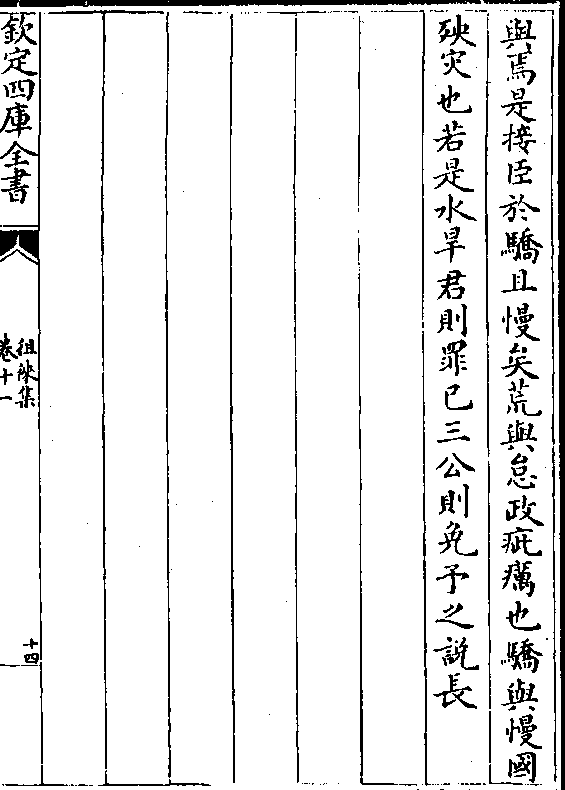 與焉是接臣於驕且慢矣荒與怠政疵癘也驕與慢國
殃灾也若是水旱君則罪已三公則免予之說長
欽定四庫全書
徂徠集
卷十一
十四